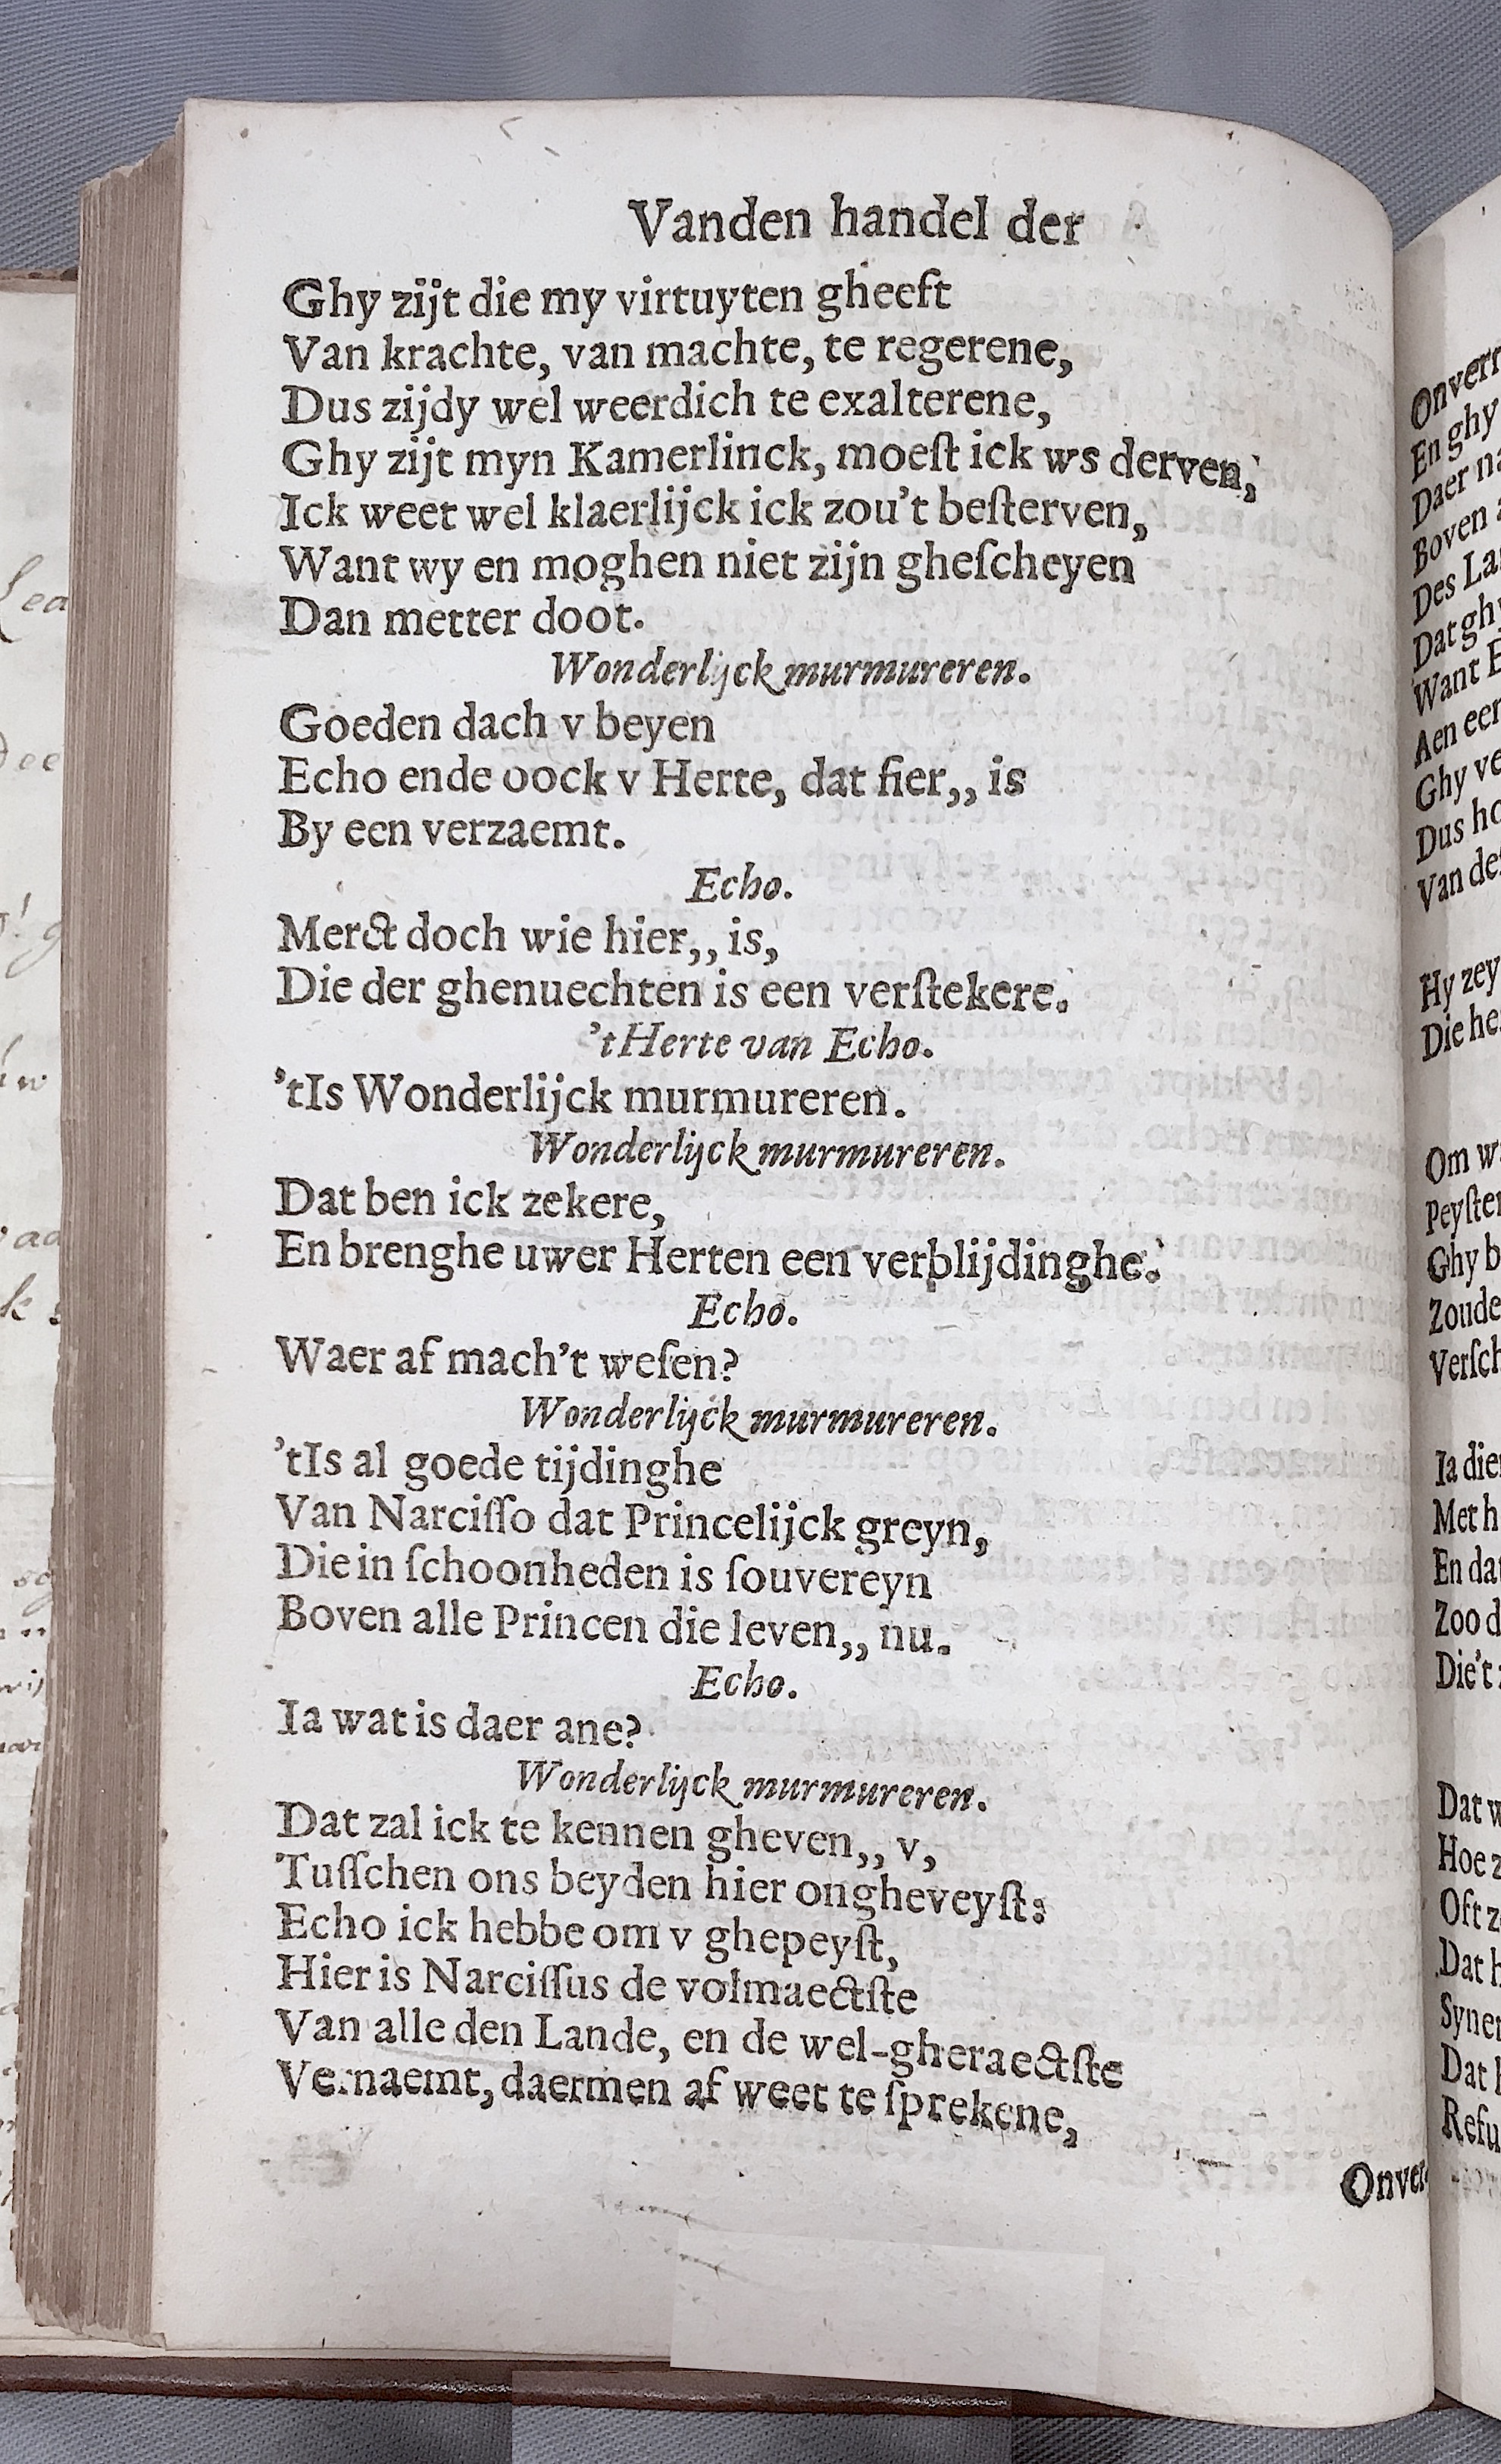 Vanden handel der
Ghy zijt die my virtuyten gheeft
Van krachte, van machte, te regerene,
Dus zijdy wel weerdich te exalterene,
Ghy zijt myn Kamerlinck, moeſt ick ws derven,
Ick weet wel klaerlijck ick zou't beſterven,
Want wy en moghen niet zijn gheſcheyen
Dan metter doot.
Wonderlijck murmureren.
Goeden dach v beyen
Echo ende oock v Herte, dat fier,, is
By een verzaemt.
Echo.
Merct doch wie hier,, is,
Die der ghenuechten is een verſtekere.
'tHerte van Echo.
'tIs Wonderlijck murmureren.
Wonderlijck murmureren.
Dat ben ick zekere,
En brenghe uwer Herten een verblijdinghe.
Echo.
Waer af mach't weſen?
Wonderlijck murmureren.
'tIs al goede tijdinghe
Van Narciſſo dat Princelijck greyn,
Die in ſchoonheden is ſouvereyn
Boven alle Princen die leven,, nu.
Echo.
Ia wat is daer ane?
Wonderlijck murmureren.
Dat zal ick te kennen gheven,, v,
Tuſſchen ons beyden hier ongheveyſt:
Echo ick hebbe om v ghepeyſt,
Hier is Narciſſus de volmaectſte
Van alle den Lande, en de wel-gheraectſte
Vernaemt, daermen af weet te ſprekene,
Onver
En ghy
Daer na
Boven
Des La
Dat ghy
Want E
Aen eer
Ghy ve
Dus ho
Van de
Hy zey
Die he
Om w
Peyſter
Ghy b
Zoude
Verſch
Ia die
Met h
En dat
Zoo d
Die't
Dat w
Hoe z
Oft z
Dat h
Syner
Dat h
Refu